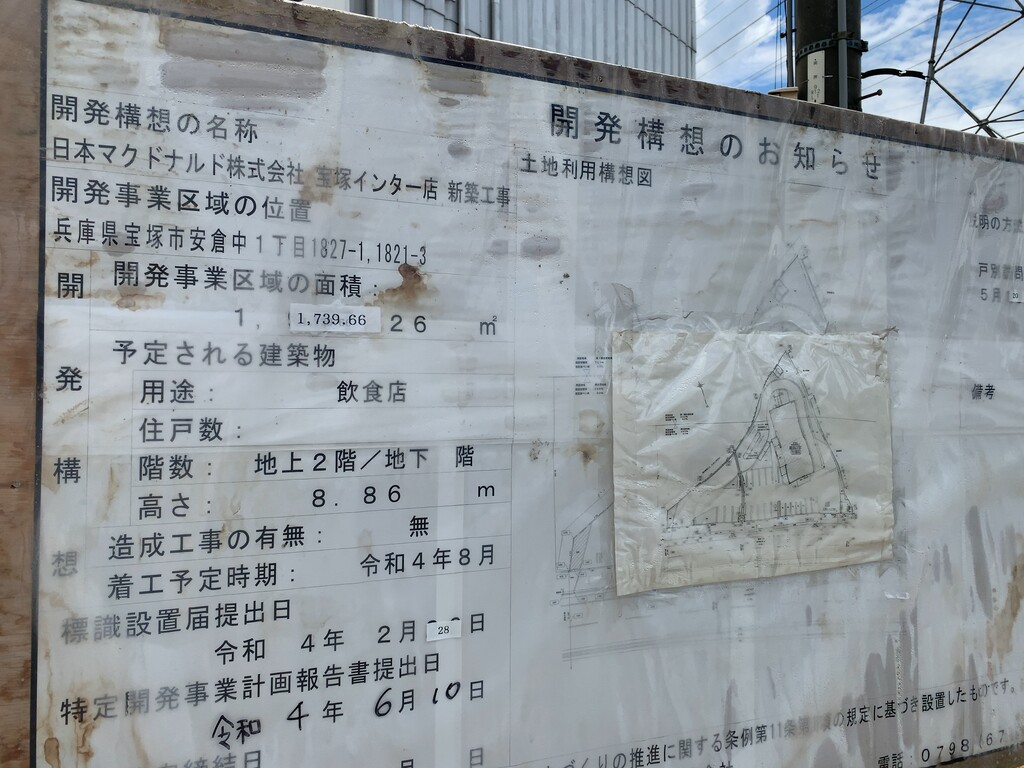 開発構想のお知らせ
開発構想の名称
日本マクドナルド株式会社 宝塚インター店 新築工事
開発事業区域の位置
兵庫県宝塚市安倉中1丁目1827-1,1821-3
開発構想
開発事業区域の面積:
1,739.66 26 ㎡
予定される建築物
用途: 飲食店
住戸数:
階数: 地上2階/地下 階
高さ: 8.86 m
造成工事の有無: 無
着工予定時期: 令和4年8月
標識設置届提出日
令和 4年 2月28日
特定開発事業計画報告書提出日
令和 4年 6月10日
締結日
月 日
土地利用構想図
説明の方法
戸別訪問
5月
20
備考
づくりの推進に関する条例第11条第 項の規定に基づき設置したものです。
電話:0798(67